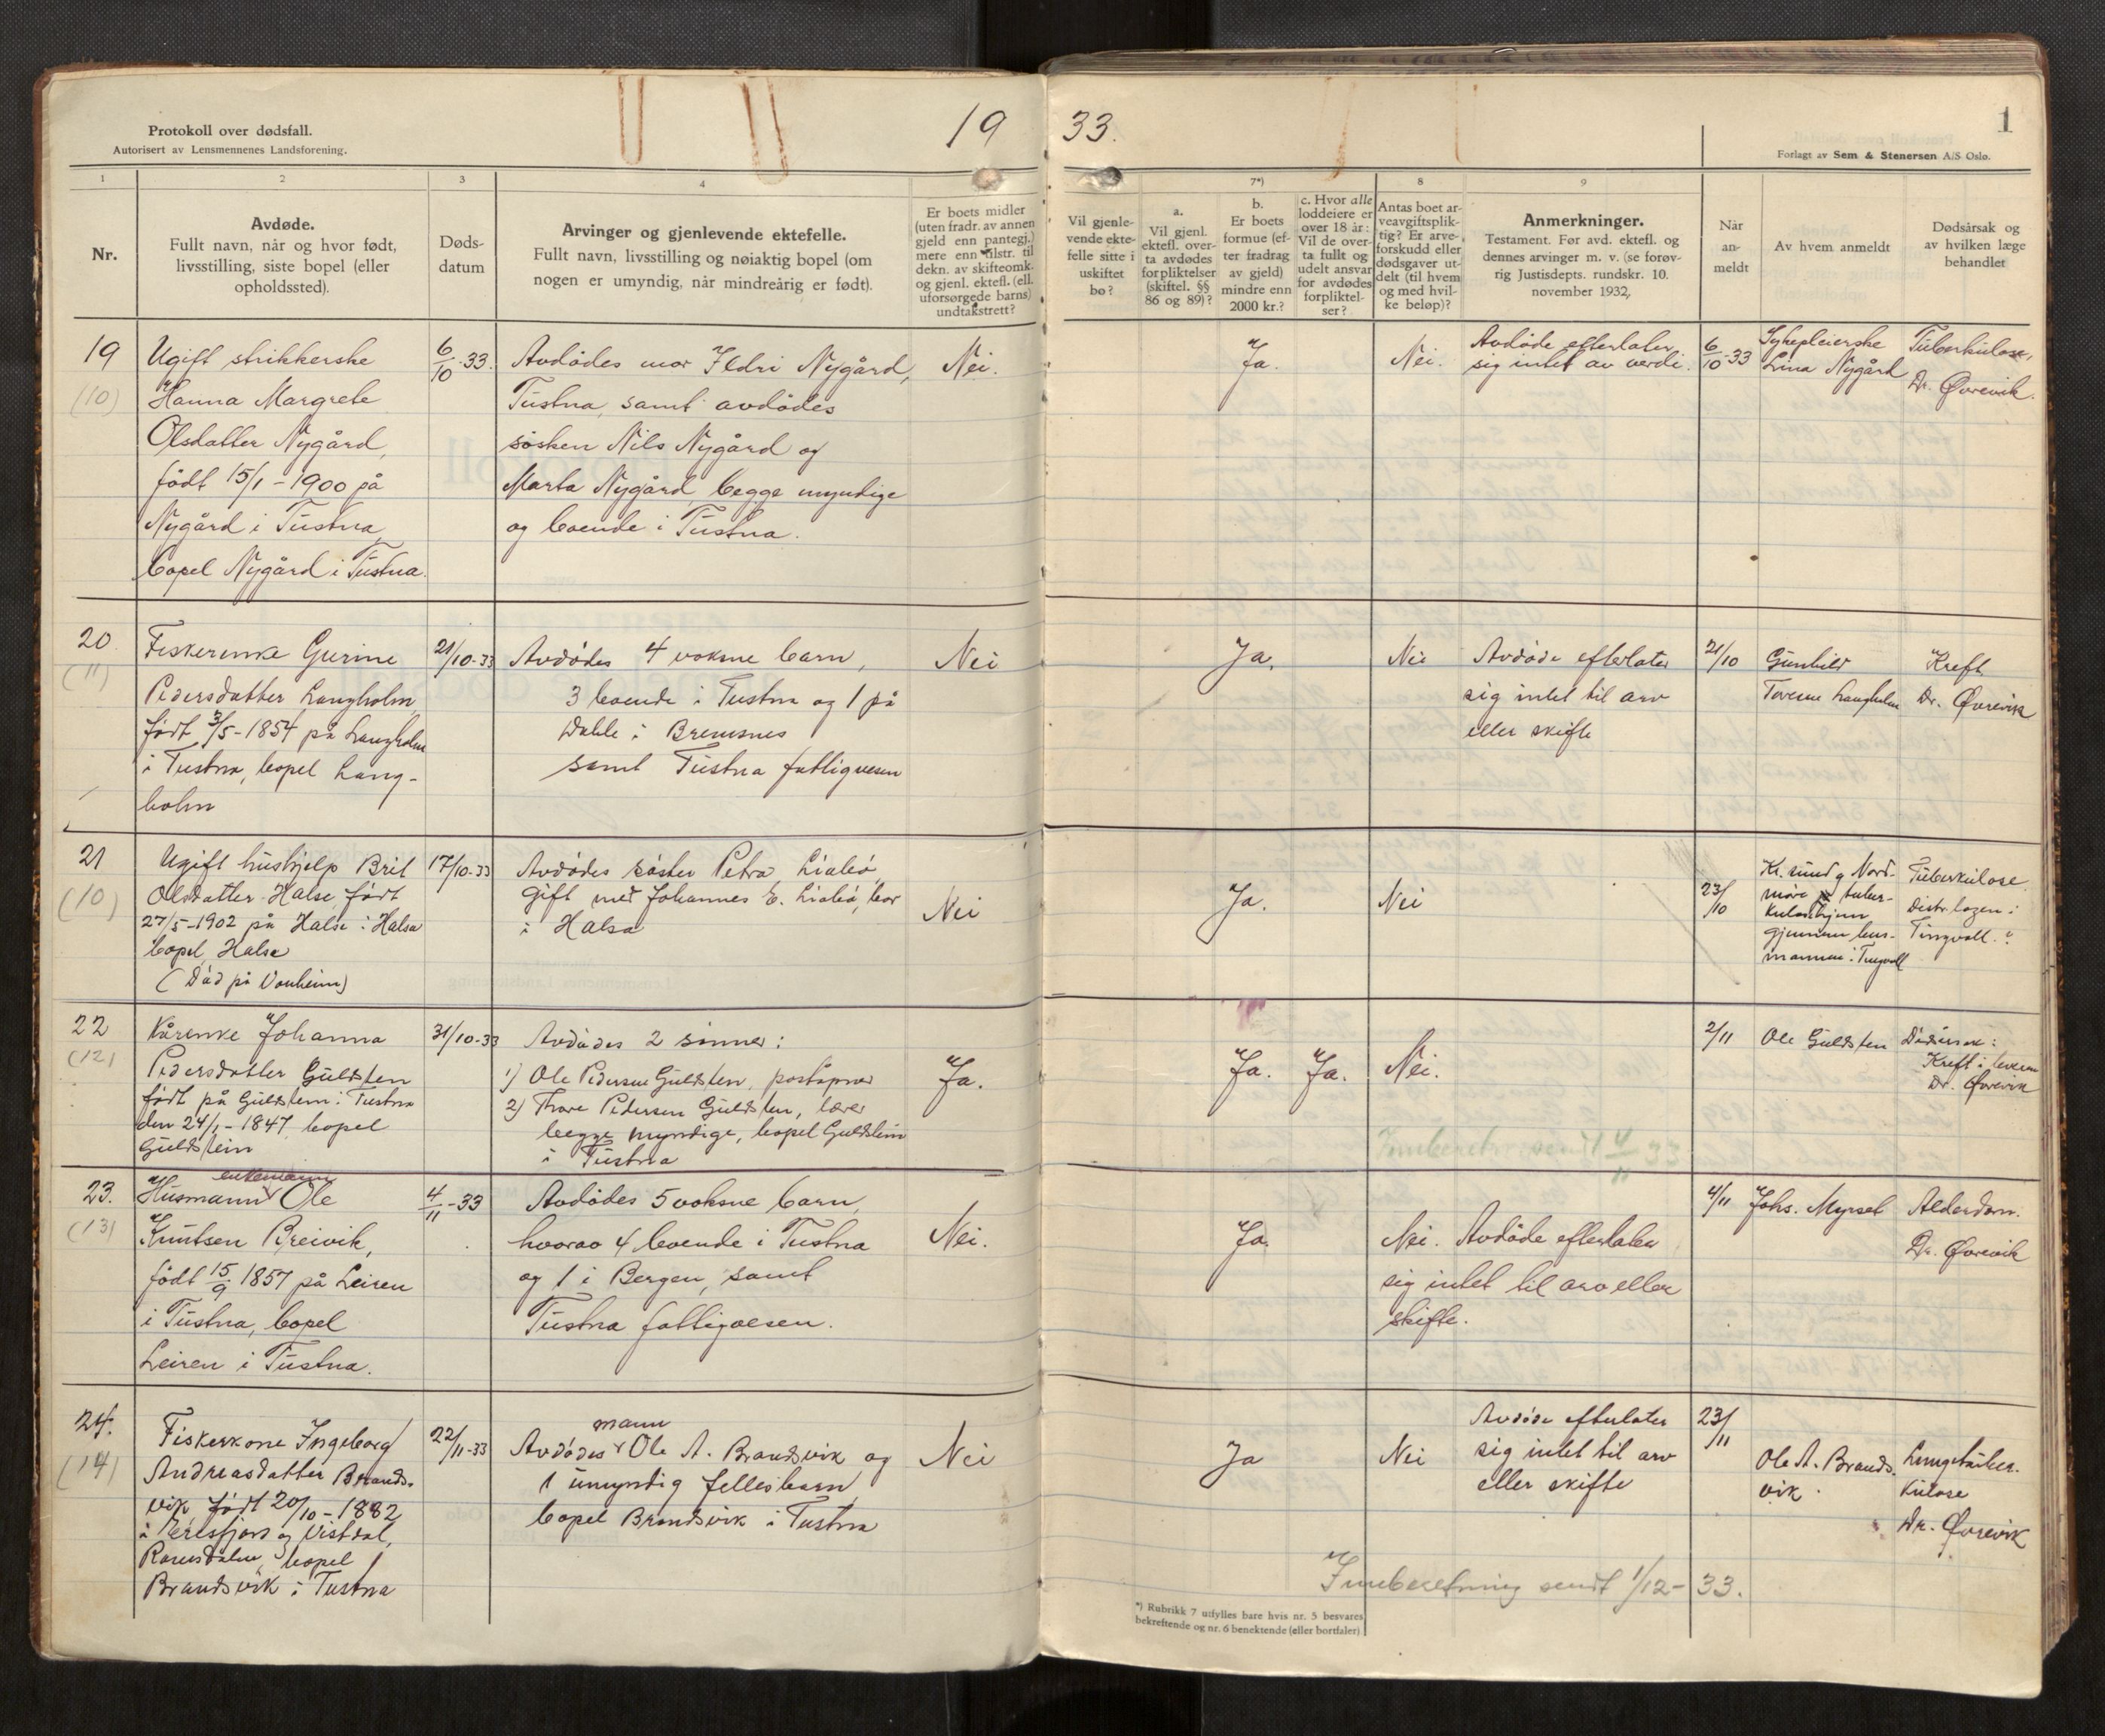 Protokoll over dødsfall.
Autorisert av Lensmennenes Landsforening.
19 33.
1
Forlagt av Sem & Stenersen A/S Oslo.
1
2
3
4
7*)
8
9
Nr.
Avdøde.
Fullt navn, når og hvor født,
livsstilling, siste bopel (eller
opholdssted).
Døds-
datum
Arvinger og gjenlevende ektefelle.
Fullt navn, livsstilling og nøiaktig bopel (om
nogen er umyndig, når mindreårig er født).
Er boets midler
(uten fradr. av annen
gjeld enn pantegj.)
mere enn tilstr. til
dekn. av skifteomk.
og gjenl. ektefl. (ell.
uforsørgede barns)
undtakstrett?
Vil gjenle-
vende ekte-
felle sitte i
uskiftet
bo?
a.
Vil gjenl.
ektefl. over-
ta avdødes
forpliktelser
(skiftel. §§
86 og 89)?
b.
Er boets
formue (ef-
ter fradrag
av gjeld)
mindre enn
2000 kr.?
c. Hvor alle
loddeiere er
over 18 år:
Vil de over-
ta fullt og
udelt ansvar
for avdødes
forpliktel-
ser?
Antas boet ar-
veavgiftsplik-
tig? Er arve-
forskudd eller
dødsgaver ut-
delt (til hvem
og med hvil-
ke beløp)?
Anmerkninger.
Testament. Før avd. ektefl. og
dennes arvinger m. v. (se forøv-
rig Justisdepts. rundskr. 10.
november 1932,
Når
an-
meldt
Av hvem anmeldt
Dødsårsak og
av hvilken læge
behandlet
19
(10)
Ugift strikkerske
Hanna Margrete
Olsdatter Nygård,
født 15/1-1900 på
Nygård i Tustna,
bopel Nygård i Tustna.
6/10-33.
Avdødes mor Ildri Nygård,
Tustna, samt avdødes
søsken Nils Nygård og
Marta Nygård, begge myndige
og boende i Tustna.
Nei.
Ja.
Nei.
Avdøde efterlater
sig intet av verdi.
6/10-33
Sykepleierske
Lina Nygård
Tuberkulose,
Dr. Øvrevik.
20
(11)
Fiskerenke Gurine
Pedersdatter Langholm,
født 3/5-1854 på Langholm
i Tustna, bopel Lang-
holm
21/10-33
Avdødes 4 voksne barn,
3 boende i Tustna og 1 på
Dahle i Bremsnes
samt Tustna fattigvesen
Nei
Ja.
Nei
Avdøde efterlater
sig intet til arv
eller skifte
21/10
Gunhild
Toresen Langholm
Kreft
Dr. Øvrevik
21
(10)
Ugift hushjelp Brit
Olsdatter Halse, født
27/5-1902 på Halse i Halsa
bopel Halse
(Død på Vonheim)
17/10-33
Avdødes søster Petra Liabø,
gift med Johannes E. Liabø, bor
i Halsa
Nei
Ja.
Nei
23/10
Kr.sund og Nord-
møre tuber-
kulosehjem
gjennem lens-
mannen i Tingvoll
Tuberkulose.
Distr.legen i
Tingvoll.
22
(12)
Kårenke Johanna
Pedersdatter Guldsten
født på Guldstein i Tustna
den 24/1-1847, bopel
Guldstein
31/10-33
Avdødes 2 sønner:
1) Ole Pedersen Guldsten, poståpner
2) Thore Pedersen Guldsten, lærer
begge myndige, bopel Guldstein
i Tustna
Ja.
Ja.
Ja.
Nei.
Innberetning sendt 4/11 33
2/11
Ole Guldsten
Dødsårsak:
Kreft i leveren
Dr. Øvrevik
23.
(13)
enkemann
Husmann Ole
Knutsen Breivik,
født 15/9 1857 på Leiren
i Tustna, bopel
Leiren i Tustna.
4/11-33
Avdødes 5 voksne barn,
hvorav 4 boende i Tustna
og 1 i Bergen, samt
Tustna fattigvesen.
Nei.
Ja.
Nei. Avdøde efterlater
sig intet til arv eller
skifte.
4/11
Johs. Myrset
Alderdom.
Dr. Øvrevik
24.
(14)
Fiskerkone Ingeborg
Andreasdatter Brands-
vik, født 20/10-1882
i Eresfjord og Vistdal,
Romsdalen, bopel
Brandsvik i Tustna
22/11-33
mann
Avdødes Ole A. Brandsvik og
1 umyndig fellesbarn,
bopel Brandsvik i Tustna
Nei
Ja
Nei
Avdøde efterlater
sig intet til arv
eller skifte
23/11
Ole A. Brands-
vik.
Lungetuber-
kulose
Dr. Øvrevik
Innberetning sendt 1/12-33.
*) Rubrikk 7 utfylles bare hvis nr. 5 besvares
bekreftende og nr. 6 benektende (eller bortfaler)